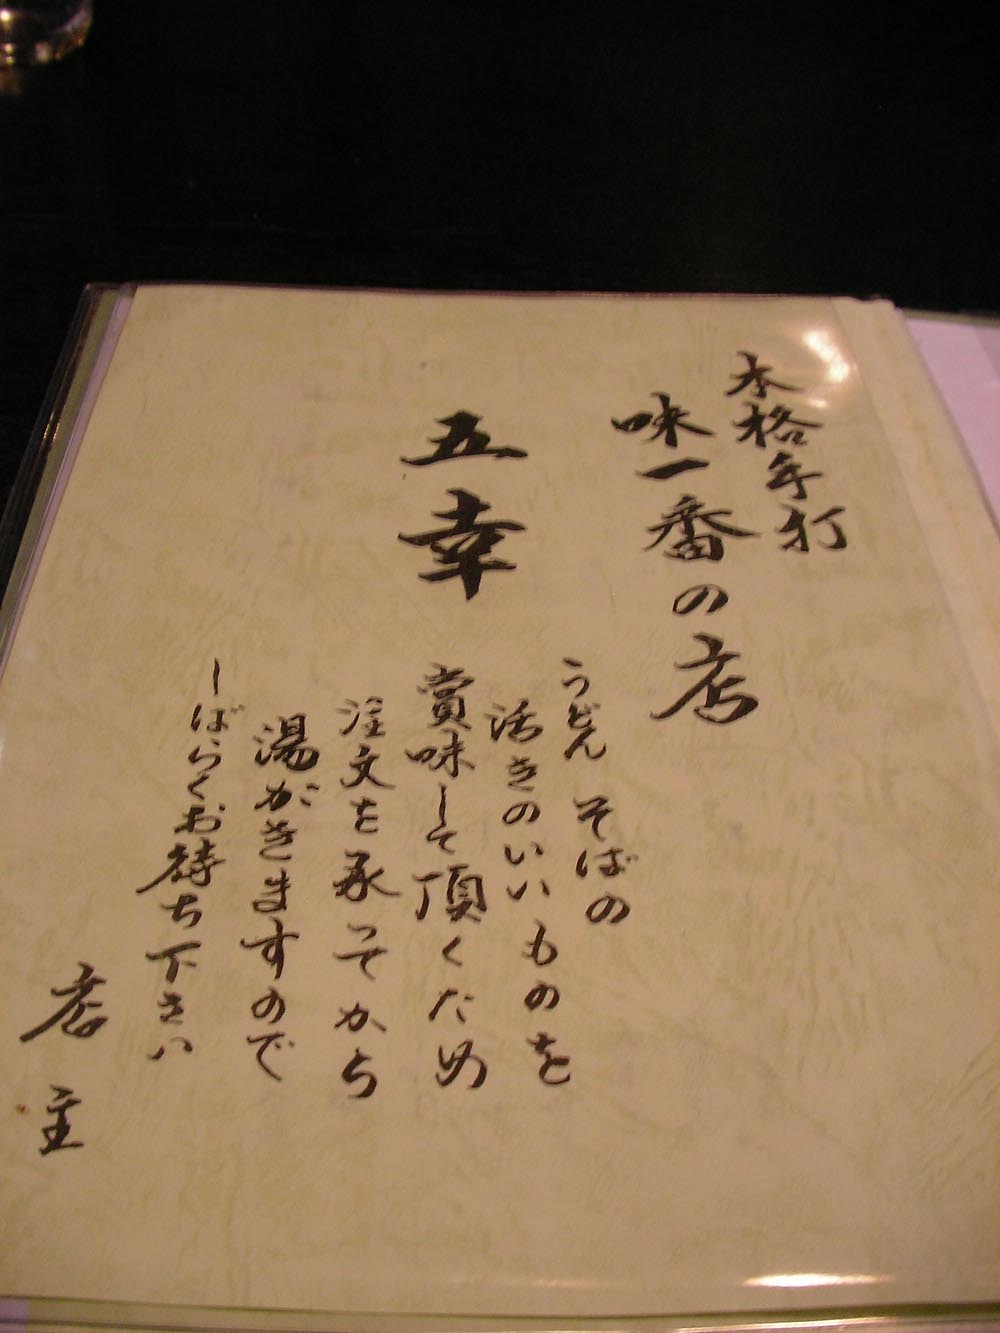 本格手打
味一番の店
五幸
うどん そばの
活きのいいものを
賞味して頂くため
注文を承ってから
湯がきますので
しばらくお待ち下さい
店主